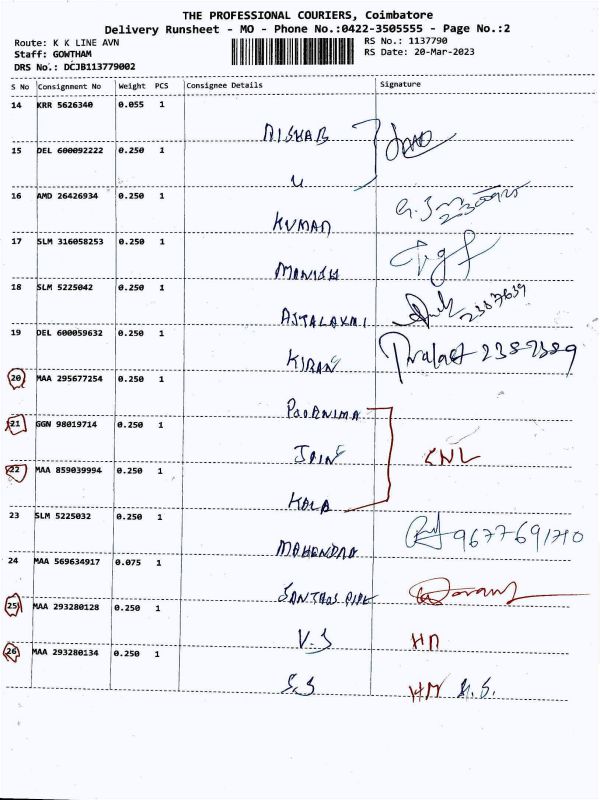 THE PROFESSIONAL COURIERS, Coimbatore
Delivery Runsheet - MO - Phone No.:0422-3505555 - Page No.:2
Route: K K LINE AVN
RS No.: 1137790
Staff: GOWTHAM
RS Date: 20-Mar-2023
DRS No.: DCJB113779002
S No Consignment No Weight PCS Consignee Details Signature
14 KRR 5626340 0.055 1
RISHAB
15 DEL 600092222 0.250 1
u
16 AMD 26426934 0.250 1
KUMAR
17 SLM 316058253 0.250 1
MANISH
18 SLM 5225042 0.250 1
ASTALAXMI 2387639
19 DEL 600059632 0.250 1
KIRAN 2387389
20 MAA 295677254 0.250 1
POORNIMA
21 GGN 98019714 0.250 1
JAIN CNL
22 MAA 859039994 0.250 1
KALA
23 SLM 5225032 0.250 1
MAHENDRA 9677691710
24 MAA 569634917 0.075 1
SANTHOS
25 MAA 293280128 0.250 1
V.S HM
26 MAA 293280134 0.250 1
S.S HM K.S.